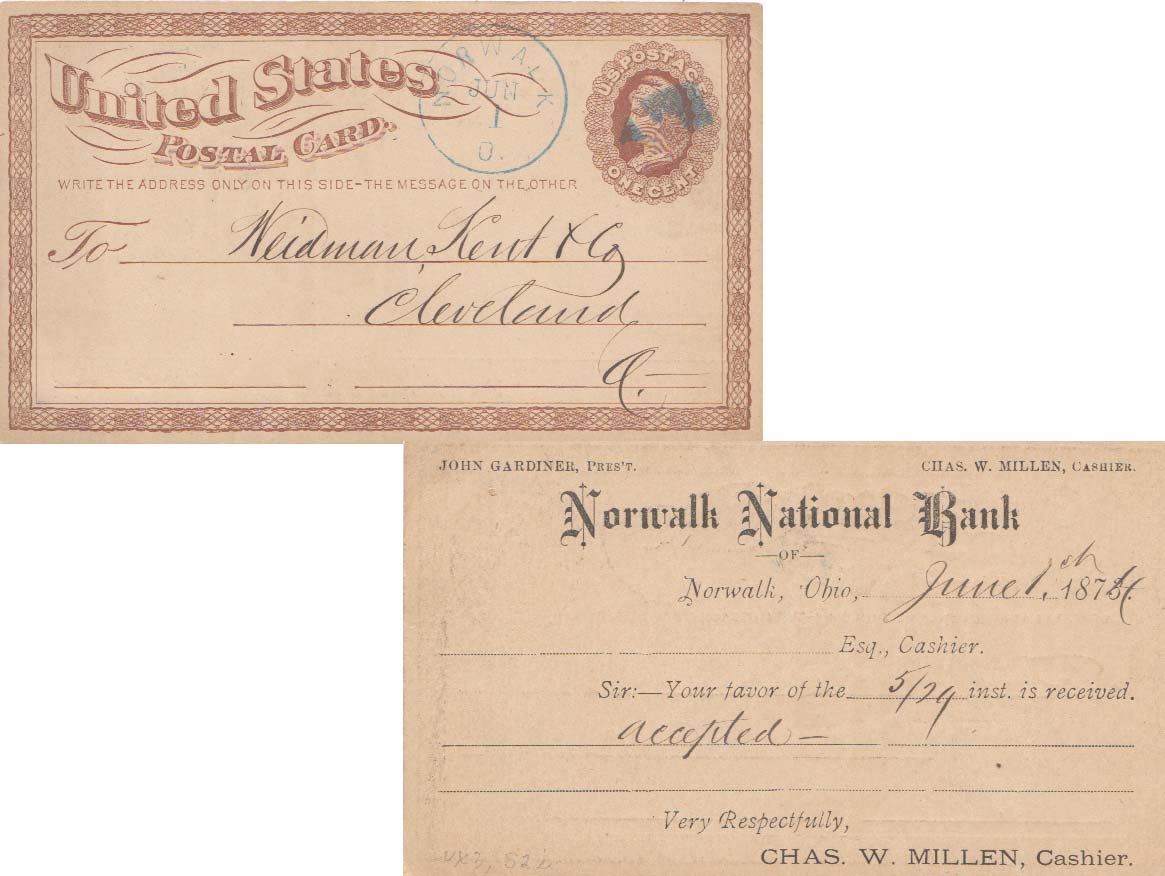 United States
Postal Card.
WRITE THE ADDRESS ONLY ON THIS SIDE-THE MESSAGE ON THE OTHER
NORWALK
JUN
1
O.
U.S. POSTAGE
ONE CENT
To Weidman, Kent & Co
Cleveland
O.
JOHN GARDINER, PRES'T. CHAS. W. MILLEN, CASHIER.
Norwalk National Bank
—OF—
Norwalk, Ohio, June 1, 1874
Esq., Cashier.
Sir:—Your favor of the 5/29 inst. is received.
accepted —
Very Respectfully,
CHAS. W. MILLEN, Cashier.